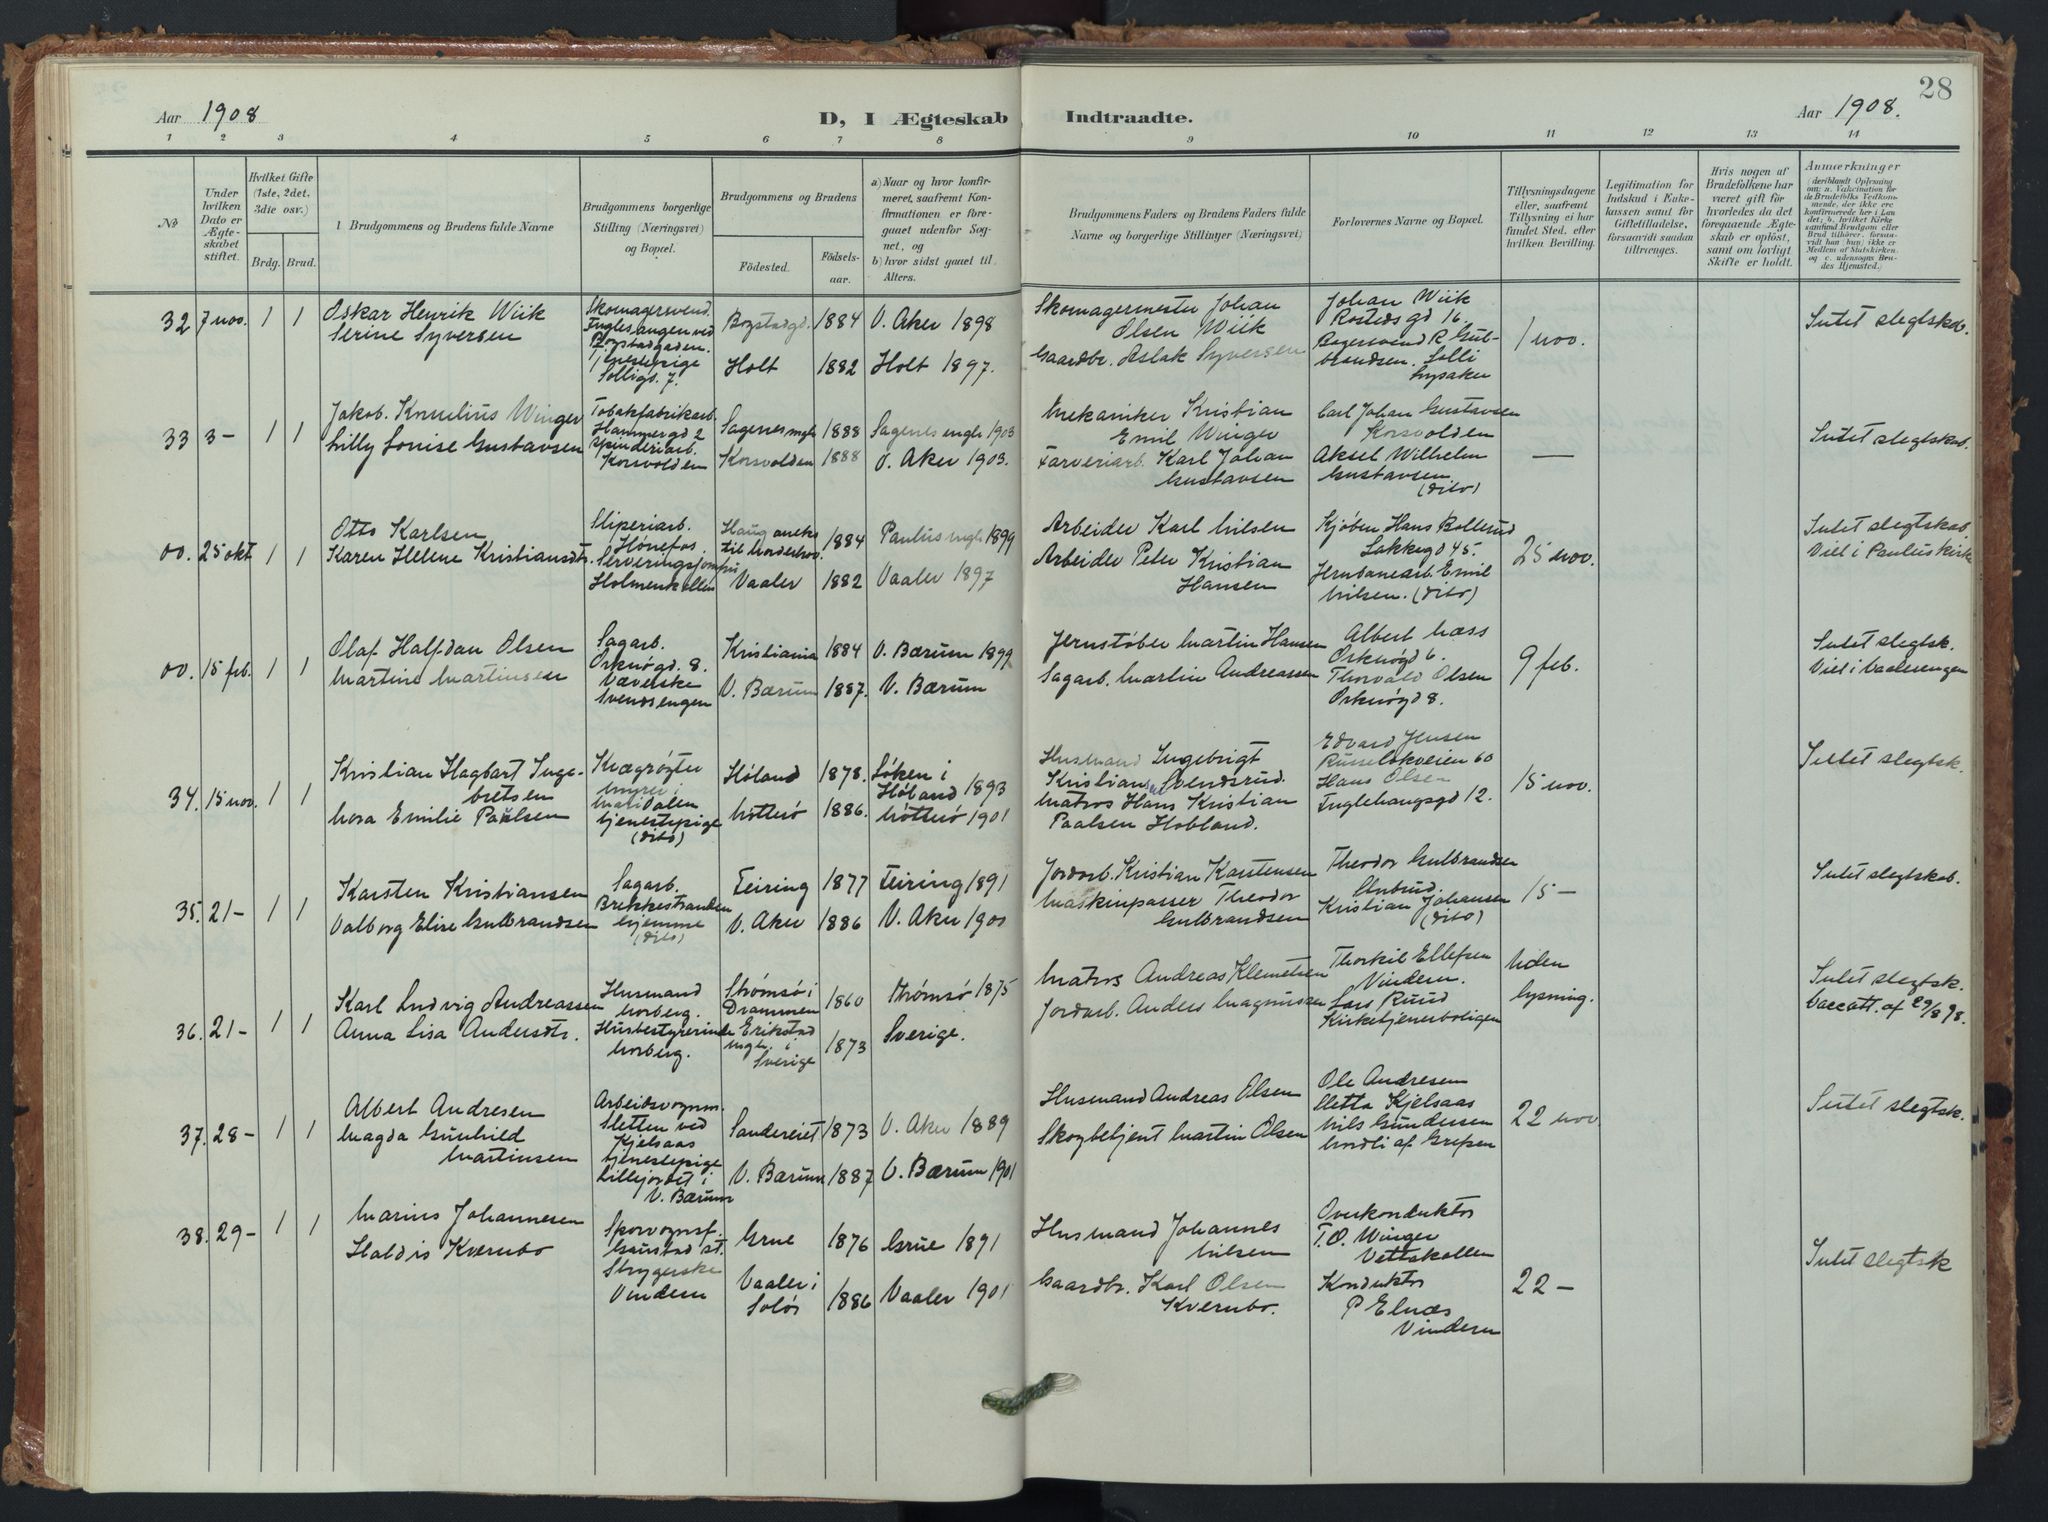 28
Aar 1908
D, I Ægteskab Indtraadte.
Aar 1908.
1 2 3 4 5 6 7 8 9 10 11 12 13 14
No
Under hvilken Dato er Ægteskabet stiftet.
Hvilket Gifte (1ste, 2det, 3die osv.)
Brdg. Brud.
1 Brudgommens og Brudens fulde Navne
Brudgommens borgerlige Stilling (Næringsvei) og Bopæl.
Brudgommens og Brudens
Födested. Födselsaar.
a) Naar og hvor konfirmeret, saafremt Konfirmationen er foregaaet udenfor Sognet, og
b) hvor sidst gaaet til Alters.
Brudgommens Faders og Brudens Faders fulde Navne og borgerlige Stillinger (Næringsvei)
Forlovernes Navne og Bopæl.
Tillysningsdagene eller, saafremt Tillysning ei har fundet Sted, efter hvilken Bevilling.
Legitimation for Indskud i Enkekassen samt for Giftetilladelse, forsaavidt saadan tiltrænges.
Hvis nogen af Brudefolkene har været gift før hvorledes da det foregaaende Ægteskab er opløst, samt om lovligt Skifte er holdt.
Anmærkninger
(deriblandt Oplysning om: a. Vakcination for de Brudefolks Vedkommende, der ikke ere konfirmerede her i Landet; b. hvilket Kirkesamfund Brudgom eller Brud tilhører, forsaavidt han (hun) ikke er Medlem af Statskirken, og c. udensogns Brudes Hjemsted.)
32 7 nov. 1 1
Oskar Henrik Wiik
Serine Syversen
Skomagersvend.
Fuglesangen ved
Bogstadgaden.
Tjenestepige
Solligt. 7.
Bogstadgd. 1884 V. Aker 1898
Holt 1882 Holt 1897.
Skomagermester Johan
Olsen Wiik
Gaardbr. Aslak Syversen
Johan Wiik
Rosteds gd 16.
Bagersvend R. Gul-
brandsen. Solli
Lysaker
1 nov.
Intet slegtskab.
33 3- 1 1
Jakob. Kornelius Winger
Lilly Lovise Gustavsen
Tobakfabrikarb.
Hammergd 2
Spinderiarb.
Korsvolden
Sagenes mgh 1888 Sagenes mgh 1903
Korsvolden 1888 V. Aker 1903.
Mekaniker Kristian
Emil Winger
Farveriarb. Karl Johan
Gustavsen
Carl Johan Gustavsen
Korsvolden
Aksel Wilhelm
Gustavsen
(dito)
—
Intet slegtskab.
00. 25 okt 1 1
Otto Karlsen
Karen Helene Kristiansdtr.
Sliperiarb.
Hønefos.
Serveringsjomfru
Holmenkollen
Haug aneks
til Norderhov. 1884 Paulus mgh 1899
Vaaler 1882 Vaaler 1897
Arbeider Karl Nilsen
Arbeider Peter Kristian
Hansen
Kjøbm Hans Bollerud
Lakkegd 45.
Jernbanearb. Emil
Nilsen. (dito)
25 nov.
Intet slegtskab
Viel i Paulus kirke
00. 15 feb. 1 1
Olaf Halfdan Olsen
Martine Martinsen
Sagarb.
Orknøgd. 8.
Væverske
Svendsengen
Kristiania 1884 V. Bærum 1899
V. Bærum 1887. V. Bærum
Jernstøber Martin Hansen
Sagarb. Martin Andreassen
Albert Næss
Orknøgd 6.
Thorvald Olsen
Orknøgd 8.
9 feb.
Intet slegtsk.
Viel i Vaalerengen
34. 15 nov. 1 1
Kristian Hagbart Inge-
bretsen
Nora Emilie Paulsen
Kvægrøgter
Myrer i
Maridalen
tjenestepige
(dito)
Høland 1878. Løken i
Høland 1893
Nøtterø 1886. Nøtterø 1901
Husmand Ingebrigt
Kristiansen Svendsrud.
Matros Hans Kristian
Paalsen Hobland.
Edvard Jensen
Russeløkveien 60
Hans Olsen
Fuglehaugsgd 12.
15 nov.
Intet slegtsk.
35. 21- 1 1
Karsten Kristiansen
Valborg Elise Gulbrandsen
Sagarb.
Brekkestranden
hjemme
(dito)
Feiring 1877 Feiring 1891
V. Aker 1886 V. Aker 1900
Jordarb. Kristian Karstensen
Maskinpasser Theodor
Gulbrandsen
Theodor Gulbrandsen
Kristian Johansen
(dito)
15-
Intet slegtskab.
36. 21- 1 1
Karl Ludvig Andreassen
Anna Lisa Andersdtr.
Husmand
Norberg.
Husbestyrerinde
Norberg.
Strømsø i
Drammen 1860 Strømsø 1875
Erikstad
mgh. i
Sverige 1873 Sverige.
Matros Andreas Klemetsen
Jordarb. Anders Magnussen
Thorkil Ellefsen
Vindern.
Lars Ruud
Kirketjenerboligen
Uden
lysning.
Intet slegtsk.
Vaccatt. af 29/8 98.
37. 28- 1 1
Albert Andresen
Magda Gunhild
Martinsen
Arbeidsvognm.
Sletten ved
Kjelsaas
tjenestepige
Lillejordet i
V. Bærum
Sandereiet 1873 V. Aker 1889
V. Bærum 1887 V. Bærum 1901
Husmand Andreas Olsen
Skogbetjent Martin Olsen
Ole Andresen
Sletta Kjelsaas
Nils Gundersen
Nordli af Grefsen
22 nov.
Intet slegtsk.
38. 29- 1 1
Marius Johannesen
Haldis Kvernbo
Sporvognsf.
Gaustad st.
Strygerske
Vindern
Grue 1876 Grue 1891
Vaaler i
Solør 1886 Vaaler 1901
Husmand Johannes
Nilsen
Gaardbr. Karl Olsen
Kvernbo.
Overkonduktør
T. O. Winger
Vettakollen
Konduktør
P Elnæs
Vindern
22-
Intet slegtsk